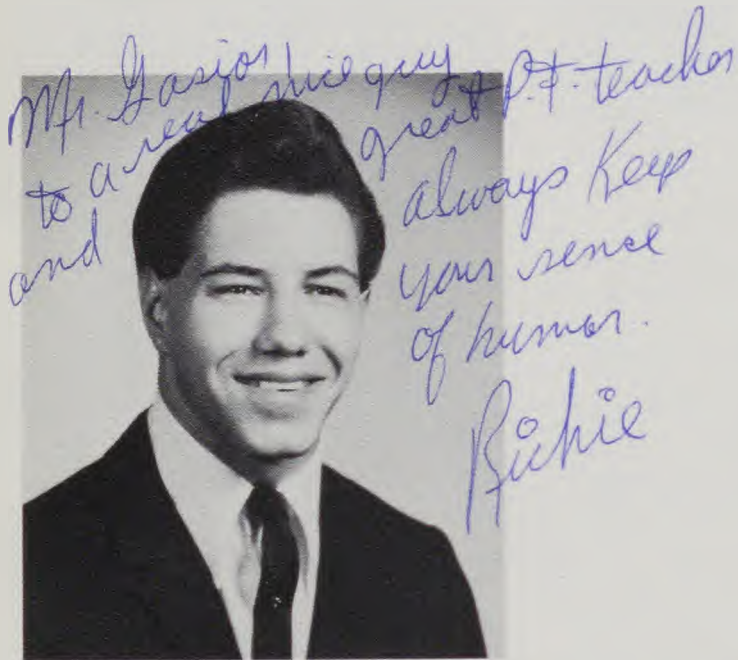 Mr. Gasior
to a real nice guy
and great P.F. teacher
always Keep
your sence
of humor.
Richie